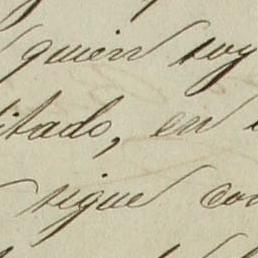 quien soy
itado, en
sigue con